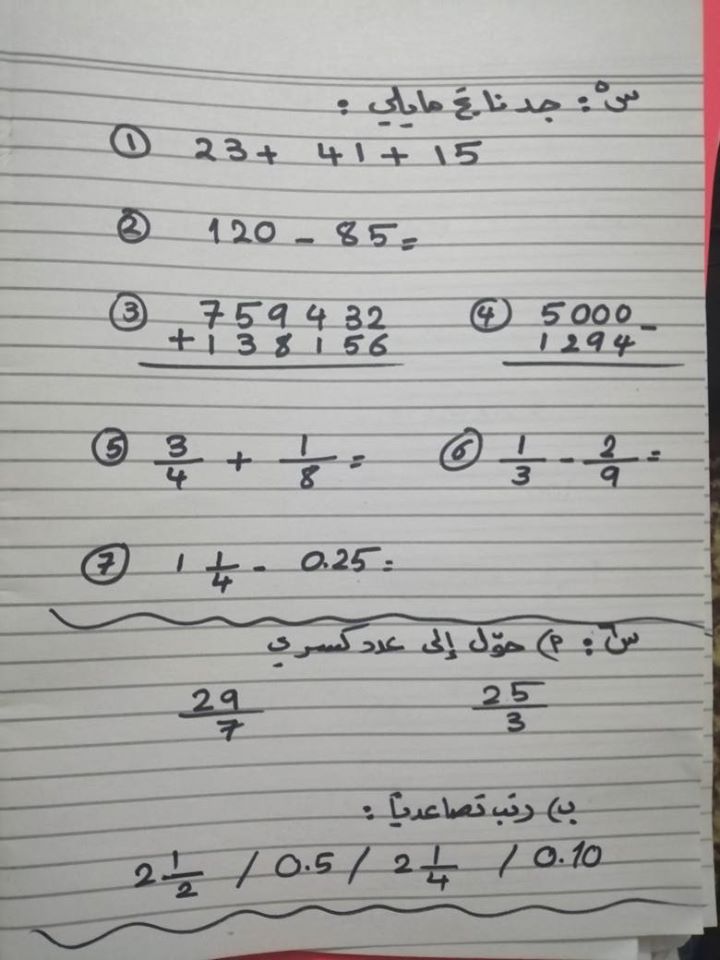 س٥: جد ناتج مايلي:
① 23 + 41 + 15
② 120 - 85 =
③ 759432 + 138156
④ 5000 - 1294
⑤ 3/4 + 1/8 =
⑥ 1/3 - 2/9 =
⑦ 1 1/4 - 0.25 =
س٦: أ) حوّل إلى عدد كسري
25/3 29/7
ب) رتب تصاعدياً:
2 1/2 / 0.5 / 2 1/4 / 0.10